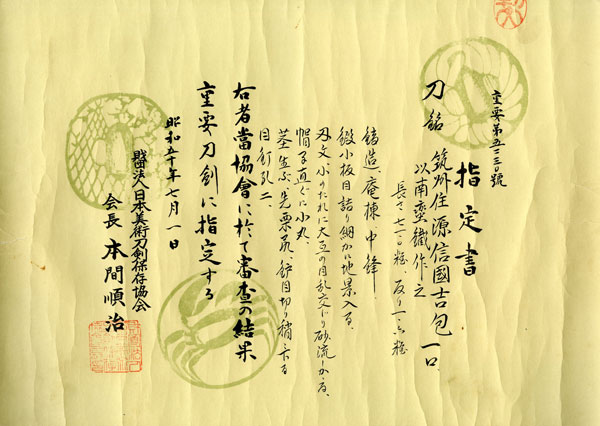 重要第五三三〇號
指定書
刀 銘 筑州住源信國吉包 一口
以南蛮鐵作之
長さ 七一・〇糎、反り 一・六糎
鎬造、庵棟、中鋒、
鍛小板目詰り細かに地景入る、
刃文小のたれに大互の目乱交じり砂流しかゝる、
帽子直ぐに小丸、
茎生ぶ、先栗尻、鑢目切り稍々下る
目釘孔二、
右者當協會に於て審査の結果
重要刀劍に指定する
昭和五十年七月一日
財団法人日本美術刀劍保存協会
会長 本間順治